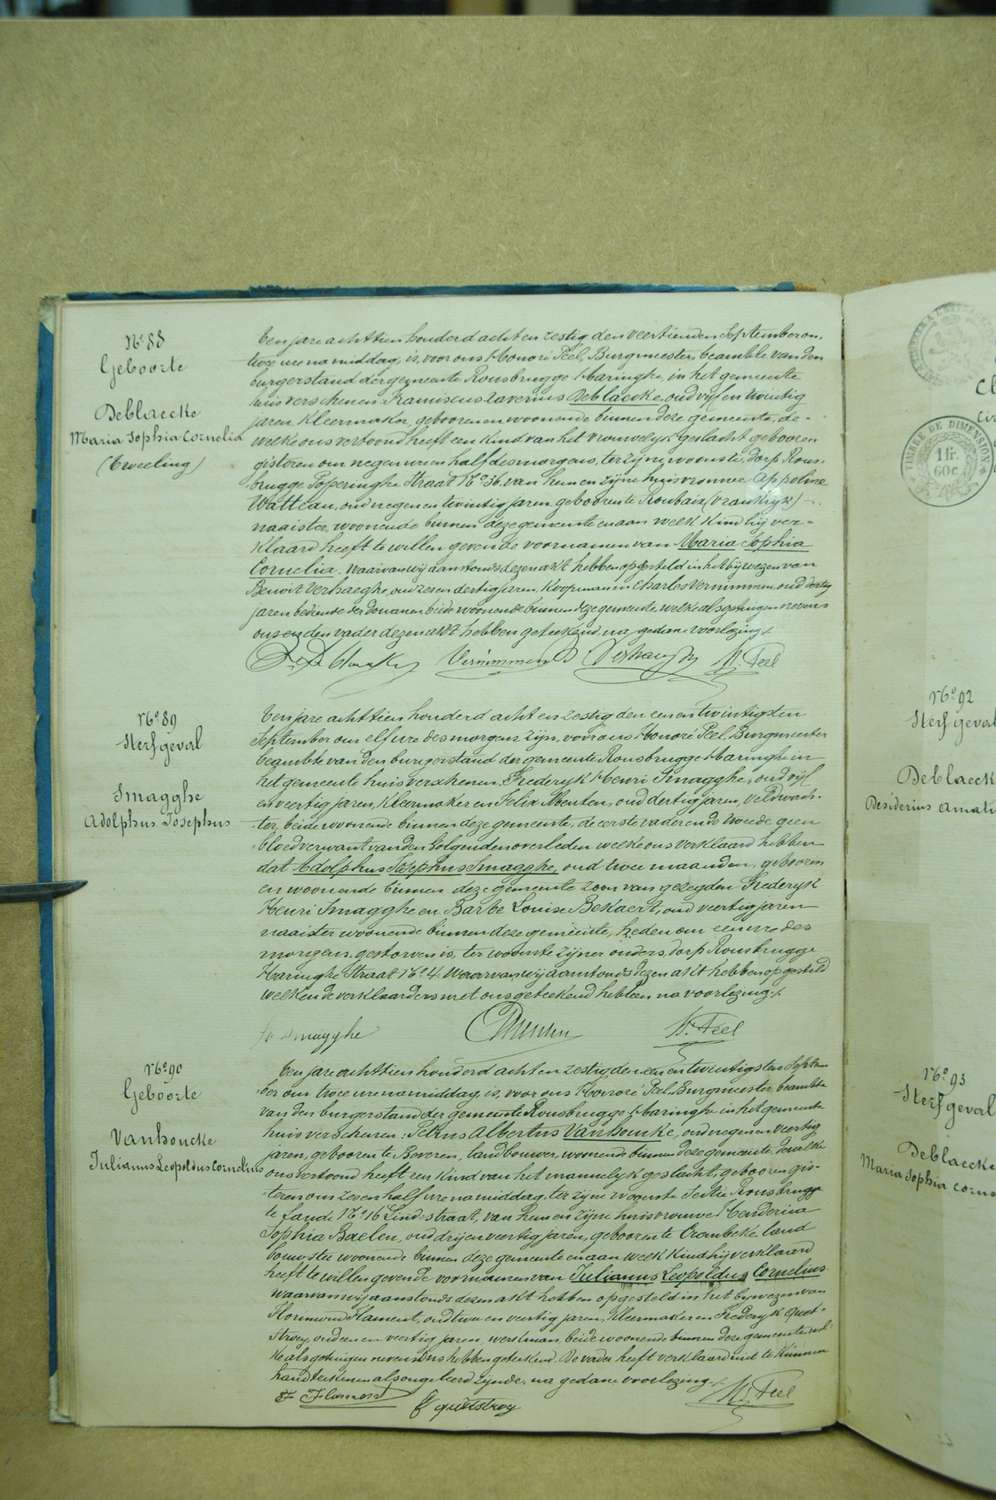 N° 88
Geboorte
Deblaecke
Maria Sophia Cornelia
(Tweeling)
Ten jare achttien honderd acht en zestig den veertienden September om
twee ure namiddag, is, voor ons Honoré Peel, Burgmeester, beambte van den
burgerstand der gemeente Rousbrugge-Haringhe, in het gemeente
huis verschenen Franciscus Xaverius Deblaecke, oud vijf en twintig
jaren, kleermaker, geboren en woonende binnen deze gemeente, de-
welke ons vertoond heeft een kind van het vrouwelijk geslacht, geboren
gisteren om negen uren half des morgens, ter zijne woonste, dorp Rous-
brugge Poperinghe Straat N° 36, van hem en zijne huisvrouwe Appoline
Watteau, oud negen en twintig jaren, geboren te Roubaix (Vrankrijk)
naaister, woonende binnen deze gemeente en aan welk kind hij ver-
klaard heeft te willen geven de voornamen van Maria Sophia
Cornelia. Waarvan wij aanstonds dezen akt hebben opgesteld in het bijwezen van
Benoit Verhaeghe, oud zeven en dertig jaren, koopman en Charles Vernimmen, oud dertig
jaren bediende der douanen beide woonende binnen deze gemeente welke als getuigen nevens
ons en den vader dezen akt hebben geteekend, na gedane voorlezing.
Vernimmen B Verhaeghe H. Peel
N° 89
Sterfgeval
Smagghe
Adolphus Josephus
Ten jare achttien honderd acht en zestig den een en twintigsten
September om elf ure des morgens zijn, voor ons Honoré Peel, Burgmeester
beambte van den burgerstand der gemeente Rousbrugge-Haringhe in
het gemeente huis verschenen Frederyk Henri Smagghe, oud vijf
en veertig jaren, kleermaker en Felix Menten, oud dertig jaren, veldwach-
ter, beide woonende binnen deze gemeente, de eerste vader en de tweede geen
bloedverwant van den volgenden overleden welke ons verklaard hebben
dat Adolphus Josephus Smagghe, oud twee maanden, geboren
en woonende binnen deze gemeente zoon van gezegden Frederyk
Henri Smagghe en Barbe Louise Bekaert, oud veertig jaren
naaister woonende binnen deze gemeente, heden om een ure des
morgens, gestorven is, ter woonste zijner ouders, dorp Rousbrugge
Haringhe Straat N° 4. Waarvan wij aanstonds dezen akt hebben opgesteld
welken de verklaarders met ons geteekend hebben na voorlezing.
Smagghe H. Peel
N° 90
Geboorte
Vanhoucke
Julianus Leopoldus Cornelius
Ten jare achttien honderd acht en zestig den een en twintigsten Septem-
ber om twee ure namiddag, is, voor ons Honoré Peel, Burgmeester, beambte
van den burgerstand der gemeente Rousbrugge-Haringhe in het gemeente
huis verschenen: Petrus Albertus Vanhoucke, oud negen en veertig
jaren, geboren te Beveren, landbouwer, woonende binnen deze gemeente dewelke
ons vertoond heeft een kind van het mannelijk geslacht, geboren gis-
teren om zeven half ure namiddag, ter zijne woonste Sectie Rousbrugge
te lande N° 16 Linde straat, van hem en zijne huisvrouwe
Sophia Baelen, oud drij en veertig jaren, geboren te Crombeke, land
bouwster woonende binnen deze gemeente en aan welk kind hij verklaard
heeft te willen geven de voornamen van Julianus Leopoldus Cornelius
waarvan wij aanstonds dezen akt hebben opgesteld in het bijwezen van
Florimond Flament, oud twee en veertig jaren, kleermaker en Frederyk Quet-
stroey, oud een en veertig jaren werkman, beide woonende binnen deze gemeente wel-
ke als getuigen nevens ons hebben geteekend. De vader heeft verklaard niet te kunnen
handteekenen als ongeleerd zijnde, na gedane voorlezing.
F Flament F quetstroey H. Peel
TIMBRE DE DIMENSION
1 fr.
60c.
N° 92
Sterfgeval
Deblaecke
Desiderius Amati
N° 93
Sterfgeval
Deblaecke
Maria Sophia Corne